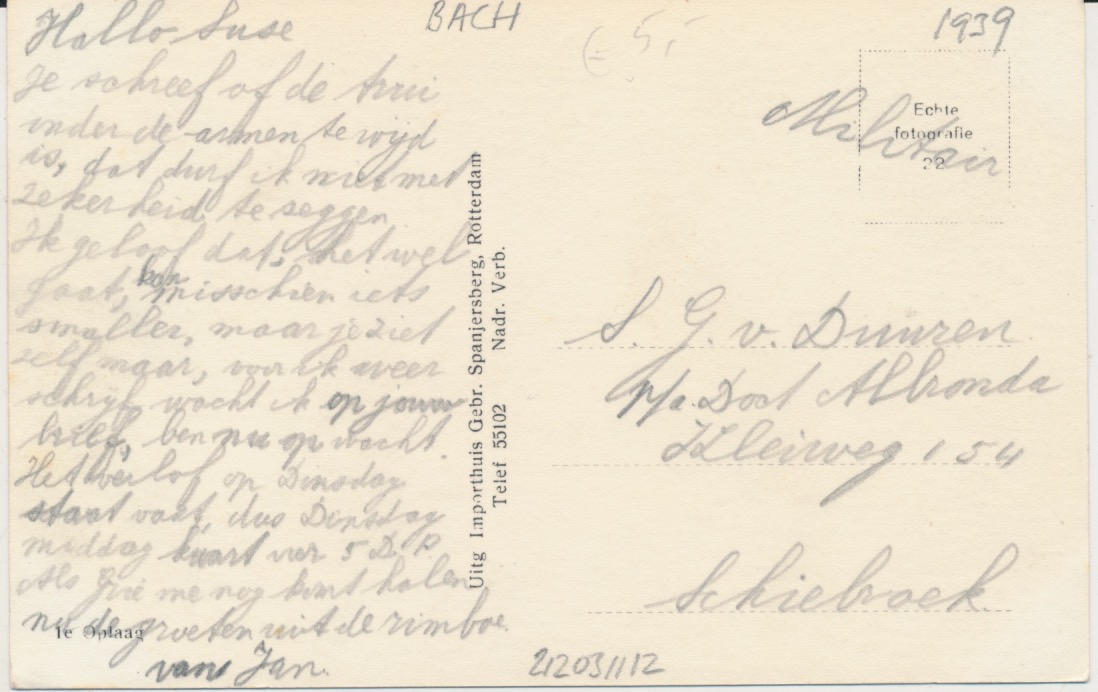 BACH
€ 5,-
1939
Hallo Suse
Je schreef of de trui
onder de armen te wijd
is, dat durf ik niet met
zekerheid te seggen
Ik geloof dat het wel
gaat, kan misschien iets
smaller, maar je ziet
zelf maar, voor ik weer
schrijf wacht ik op jouw
brief, ben nu op wacht.
Het verlof op Dinsdag
staat vast, dus Dinsdag
middag kwart voor 5 D.P.
Als Jie me nog komt halen
nu de groeten uit de rimboe
van Jan.
1e Oplaag
Uitg Importhuis Gebr. Spanjersberg, Rotterdam
Telef 55102 Nadr. Verb.
Militair
Echte
fotografie
22
S. G. v. Duuren
p/a Doct
Kleiweg 154
Schiebroek
212031112